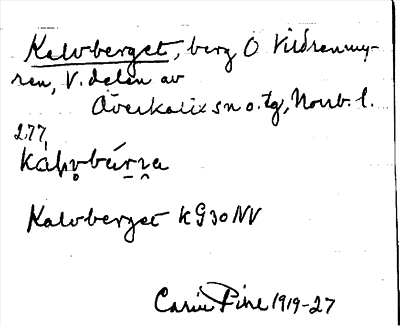 Kalvberget, berg O Vildrenmy-
ren, V. delen av
Överkalix sn o. tg, Norrb. l.
277,
Kalvberget KG30NV
Carin Pihl 1919-27